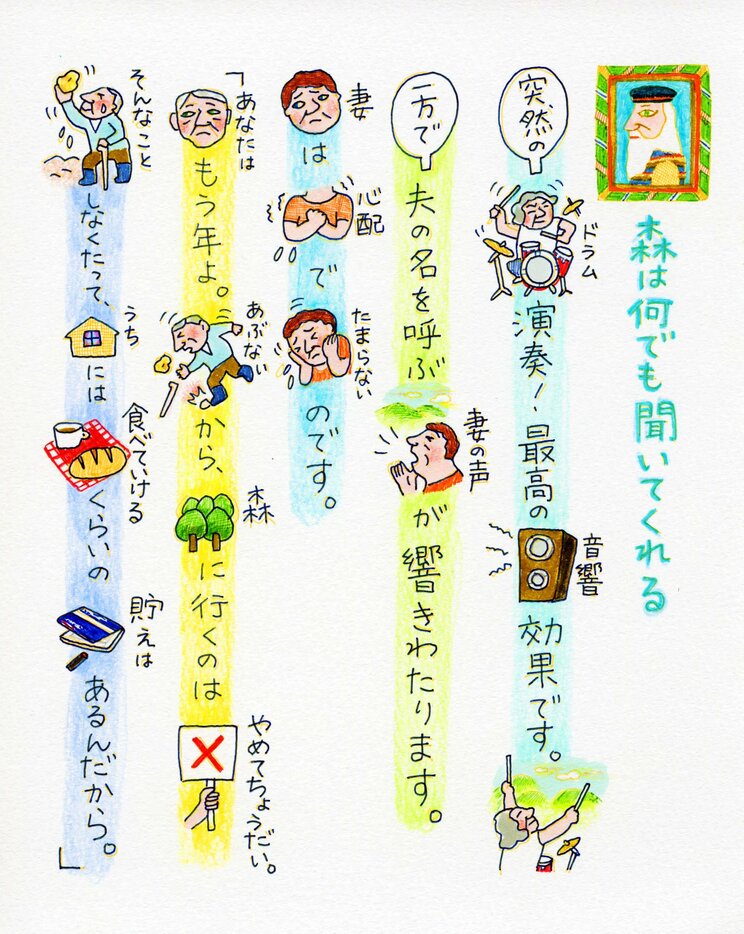 森は何でも聞いてくれる
突然のドラム演奏！最高の音響効果です。
一方で夫の名を呼ぶ妻の声が響きわたります。
妻は心配でたまらないのです。
「あなたはもう年よ。あぶないから、森に行くのはやめてちょうだい。
そんなことしなくたって、うちには食べていけるくらいの貯えはあるんだから。」